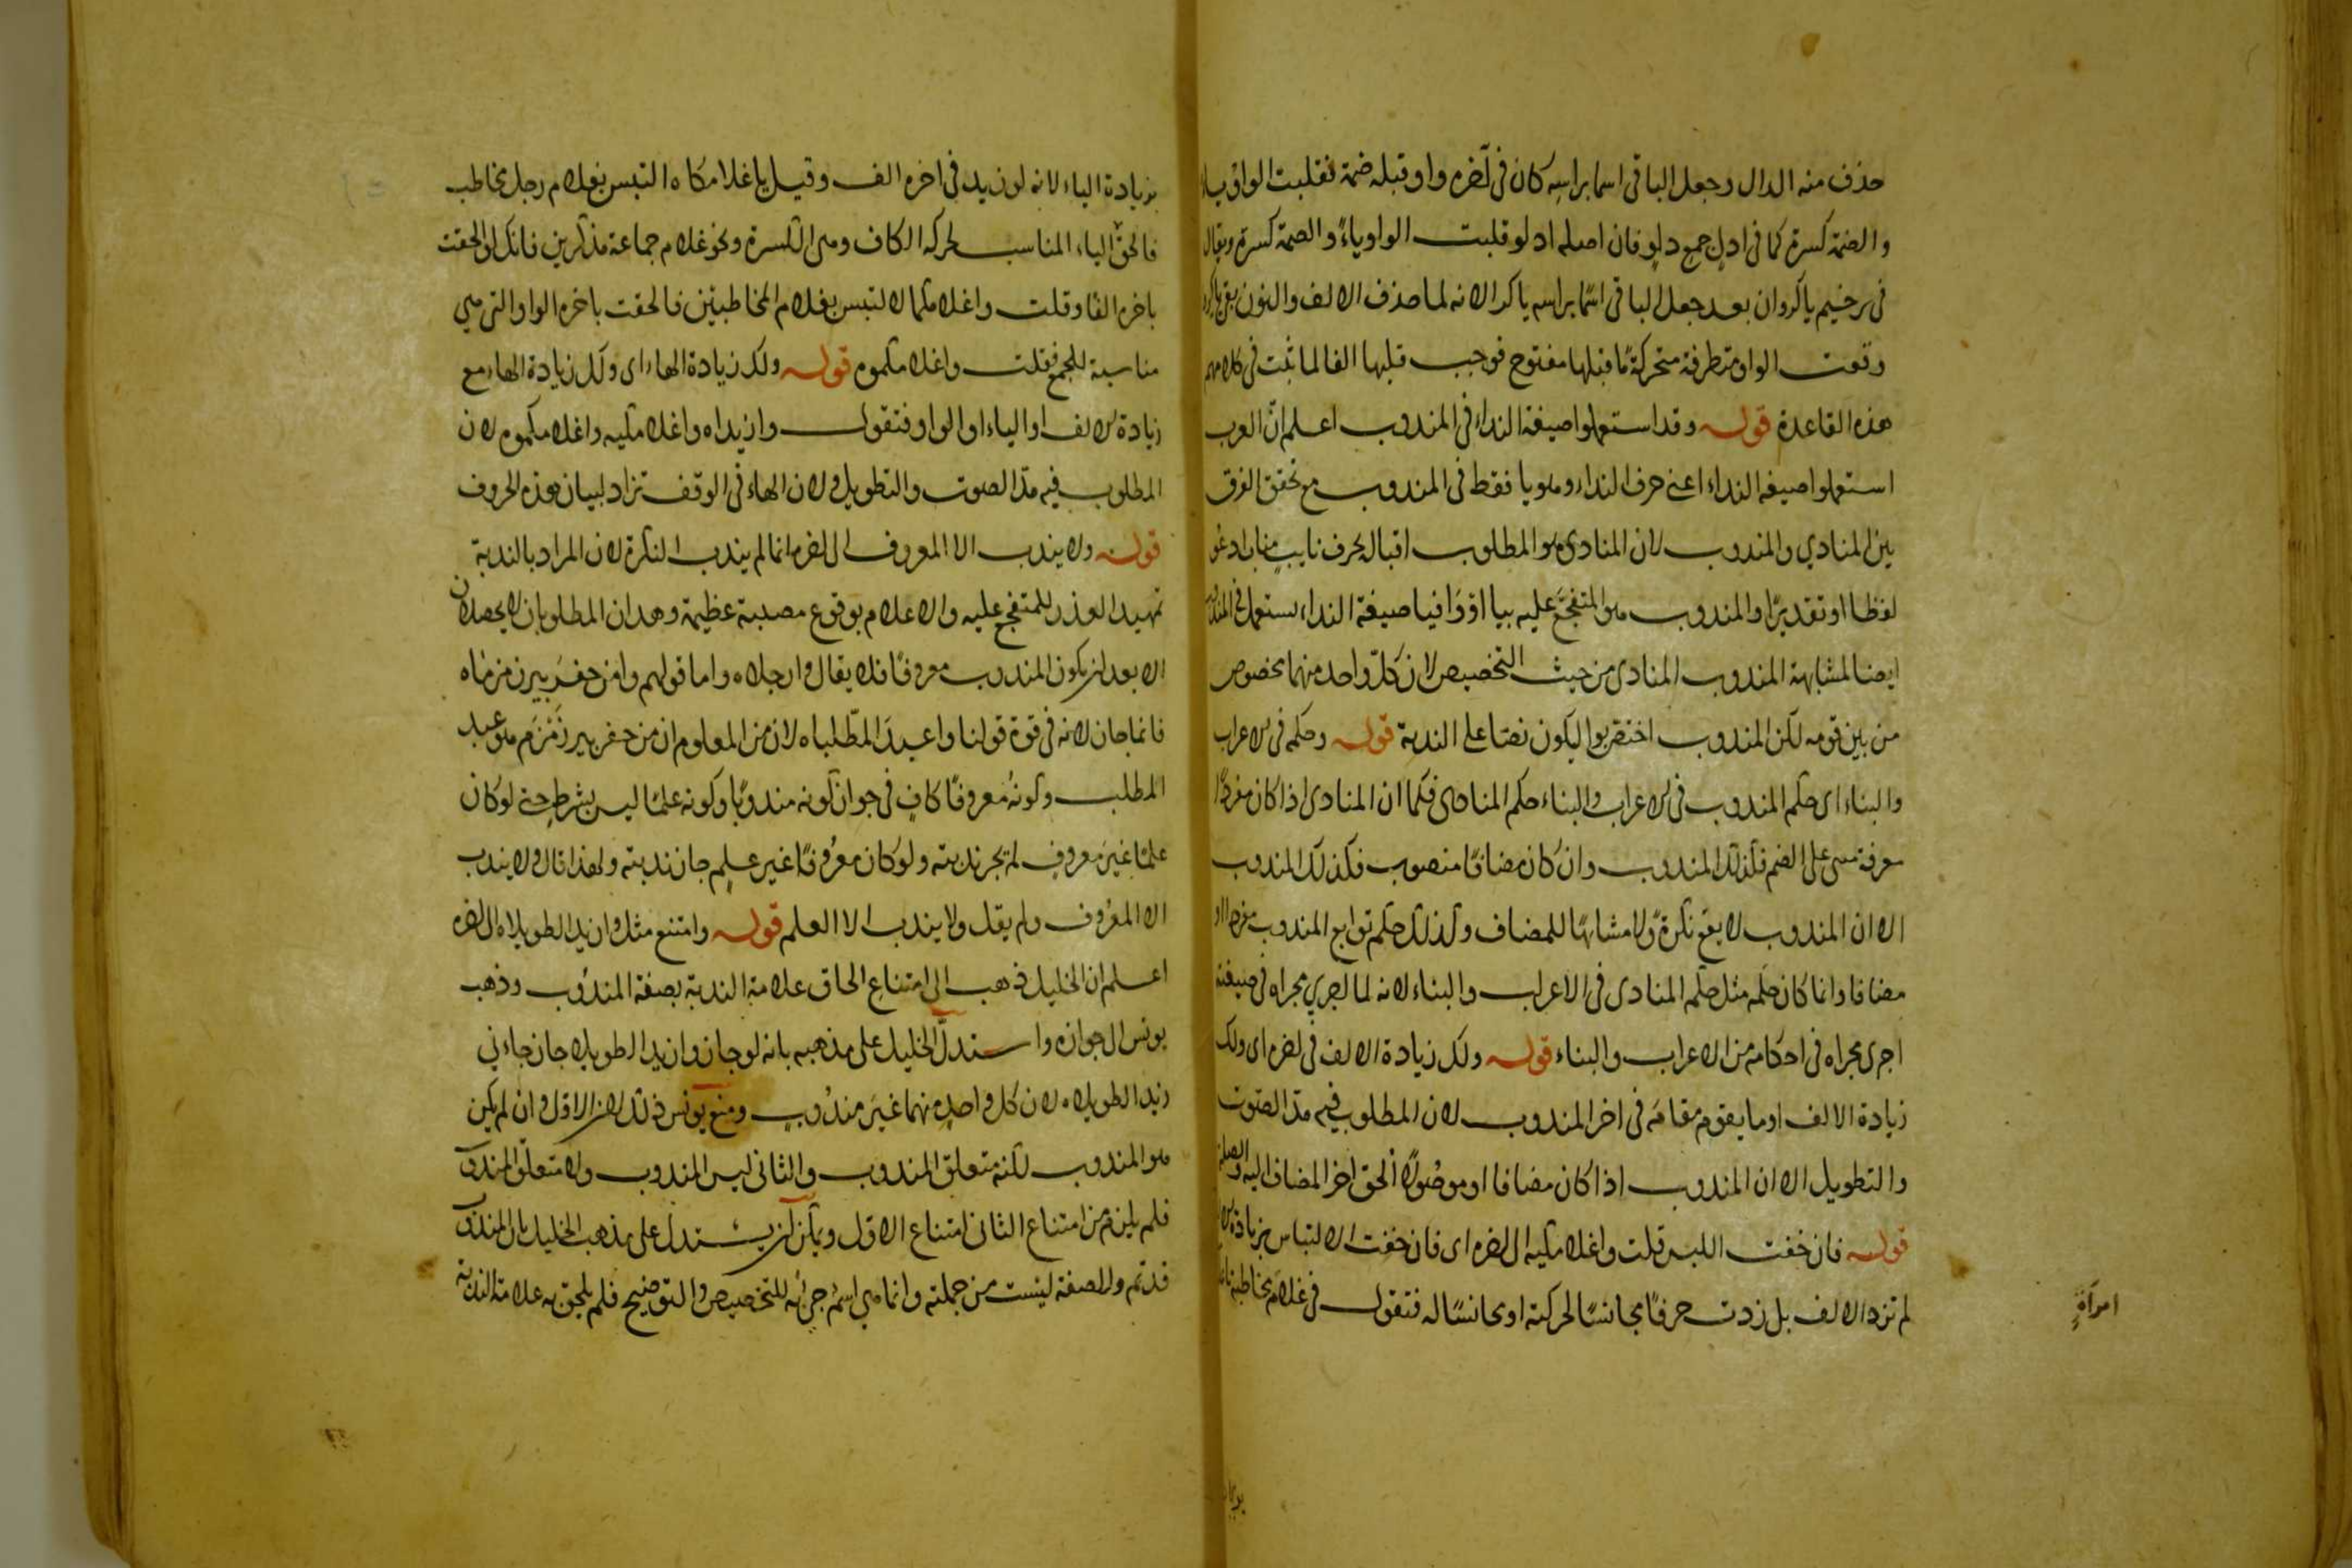 حذف منه الدال وجعل الباقى اسما براسه كان فى آخره واو قبله ضمة فقلبت الواو ياء
والضمة كسرة كما فى ادلٍ جمع دلوٍ فان اصله ادلو قلبت الواو ياءً والضمة كسرة ويقال
فى ترخيم ياكروان بعد جعل الباقى اسمًا براسه ياكرا لانه لما حذف الالف والنون بقى ياكرو
وقعت الواو متطرفة متحركةً ما قبلها مفتوح فوجب قلبها الفا لما ثبت فى كلامهم
هذه القاعدة قوله وقد استعملوا صيغة النداء فى المندوب اعلم انّ العرب
استعملوا صيغة النداء اعنى حرف النداء وهو يا فقط فى المندوب مع تحقق الفرق
بين المنادي والمندوب لان المنادى هو المطلوب اقباله بحرف نايبٍ مناب ادعو
لفظا او تقديرًا والمندوب هو المتفجَّع عليه بيا او وَا فيا صيغة النداء يستعمل فى المندوب
ايضا لمشابهة المندوب المنادى من حيث التخصيص لان كلّ واحد منهما مخصوص
من بين قومه لكن المندوب اختص بوا ليكون نصّا على الندبة قوله وحكمه فى الاعراب
والبناء اى حكم المندوب فى الاعراب والبناء حكم المنادى فكما ان المنادى اذا كان مفردًا
معرفة مبنى على الضم فكذلك المندوب وان كان مضافًا منصوب فكذلك المندوب
الا ان المندوب لا يقع نكرةً ولا مشابهًا للمضاف وكذلك حكم توابع المندوب مفردا او
مضافا وانما كان حكمه مثل حكم المنادى فى الاعراب والبناء لانه لما اجري مجراه فى صيغته
اجرى مجراه فى احكامه من الاعراب والبناء قوله ولك زيادة الالف فى اخره اى ولك
زيادة الالف او ما يقوم مقامَه فى اخر المندوب لان المطلوب فيه مدّ الصوت
والتطويل الا ان المندوب اذا كان مضافا او موصُولًا اُلحق اخر المضاف اليه والصلة
قوله فان خفت اللبس قلت واغلامكيه الى اخره اى فان خفت الالتباس بزيادة الالف
لم تزد الالف بل زدت حرفًا مجانسًا لحركته او مجانسًا له فتقول فى غلام مخاطبة
امرأةٍ
بزيادة الياء لانه لو زيد فى اخره الف وقيل ياغلامكاه التبس بغلام رجل مخاطب
فالحق الياء المناسب لحركه الكاف وهى الكسرة ونحو غلام جماعة مذكرين فانك لو الحقت
باخره الفا وقلت واغلامكماه لالتبس بغلام المخاطبَين فالحقت باخره الواو التى هي
مناسبة للجمع فقلت واغلامكموه قوله ولك زيادة الهاء اى ولك زيادة الهاء مع
زيادة الالف او الياء او الواو فتقول وازيداه واغلامكيه واغلامكموه لان
المطلوب فيه مدّ الصوت والتطويل ولان الهاء فى الوقف تزاد لبيان هذه الحروف
قوله ولا يندب الا المعروف الى اخره انما لم يندب النكرة لان المراد بالندبة
تمهيد العذر للمتفجع عليه والاعلام بوقوع مصيبة عظيمة وهذان المطلوبان لا يحصلان
الا بعد ان يكون المندوب معروفًا فلا يقال وارجلاه واما قولهم وامن حفرَ بير زمزماه
فانما جاز لانه فى قوة قولنا واعبدَ المطّلباه لان من المعلوم ان من حفر بير زَمْزَم هو عبد
المطلب وكونهُ معروفًا كافٍ فى جواز كونه مندوبًا وكونه علمًا ليس بشرطٍ حتى لو كان
علمًا غيرَ معروفٍ لم يجز ندبته ولو كان معرُوفًا غير علمٍ جاز ندبته ولهذا قال ولا يندب
الا المعرُوف ولم يقل ولا يندب الا العلم قوله وامتنع مثل وازيد الطويلاه الى اخره
اعلم ان الخليل ذهب الى امتناع الحاق علامة الندبة بصفة المندُوب وذهب
يونس الى جوازه واستدلّ الخليل على مذهبه بانه لو جاز وازيد الطويلاه جاز جاءني
زيد الطويلاه لان كل واحدٍ منهما غيرَ مندُوبٍ ومنع يونس ذلك لان الاول وان لم يكن
هو المندوب لكنه متعلق المندوب والثانى ليس المندوب ولا متعلّق المندوب
فلم يلزم من امتناع الثانى امتناع الاول ويمكن ان يستدل على مذهب الخليل بان المندوب
قد تم والصفة ليست من جملته وانما هي اسمٌ جئ به للتخصيص والتوضيح فلم يلحق به علامة الندبة